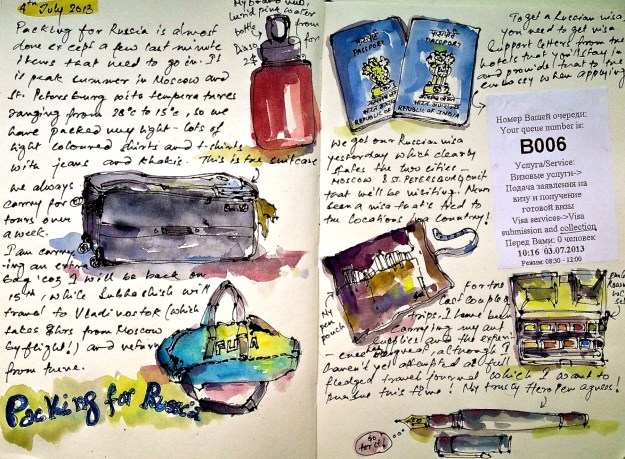 4th July 2013
Packing for Russia is almost
done except a few last minute
items that need to go in. It
is peak summer in Moscow and
St. Petersburg with temperatures
ranging from 28°c to 15°c, so we
have packed very light - lots of
light coloured shirts and t-shirts
with jeans and khakis. This is the suitcase
we always
carry for
tours over
a week.
I am carry-
ing an extra
bag 'cos I will be back on
15th, while Subhashish will
travel to Vladivostok (which
takes 8hrs from Moscow
by flight!) and return
from there.
Packing for Russia
My brand new,
pink water
bottle
from
for
FILA
PASSPORT
REPUBLIC OF INDIA
PASSPORT
REPUBLIC OF INDIA
To get a Russian visa,
you need to get visa
support letters from the
hotels that you'll stay in
and provide that to the
embassy when applying
We got our Russian visa
yesterday which clearly
states the two cities –
MOSCOW & ST. PETERSBURG that
that we'll be visiting. Never
seen a visa that's tied to
the locations in a country!
Номер Вашей очереди:
Your queue number is:
B006
Услуга/Service:
Визовые услуги->
Подача заявления на
визу и получение
готовой визы
Visa services->Visa
submission and collection
Перед Вами: 0 человек
10:16 03.07.2013
Режим: 08:30 - 12:00
My
pen
pouch
For the
last couple of
trips, I have been
carrying my art
supplies and the experi-
ence
great, although I
haven't yet attempted a full
fledged travel journal which I want to
pursue this time! My trusty Hero Pen agrees!
Go
for it!